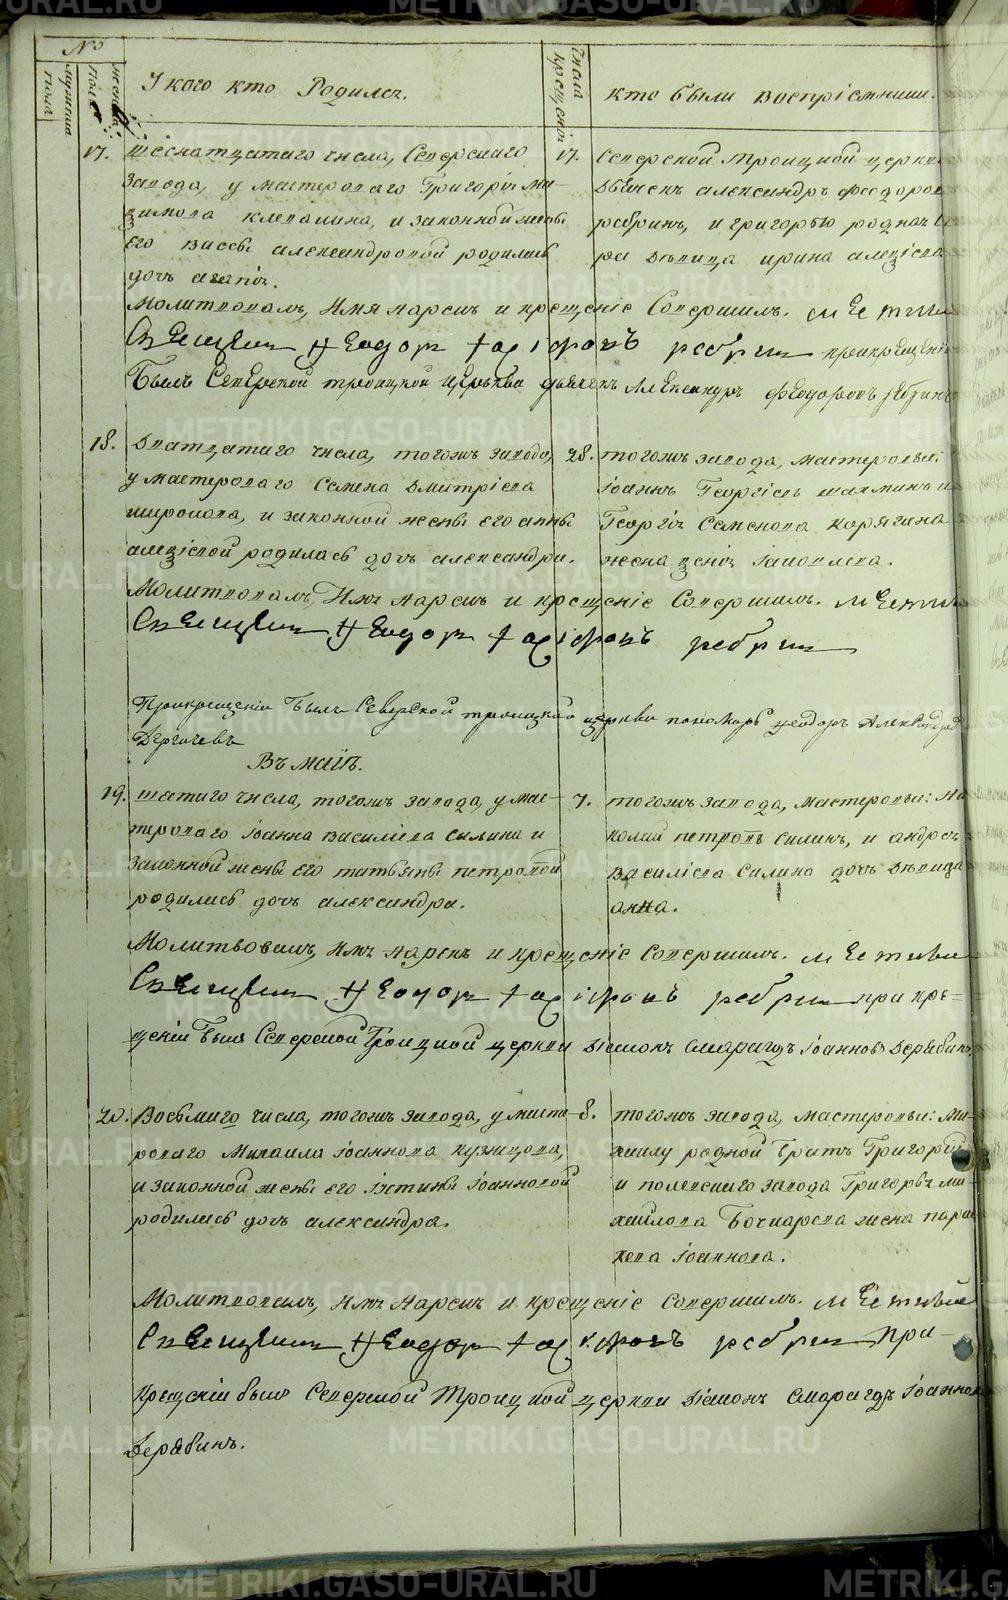 METRIKI.GASO-URAL.RU
№
мужеска пола
женска пола
У кого кто родился.
Числа крещенія
кто были воспріемники.
17. шеснатцатаго числа, Северскаго
завода, у мастероваго Григорія
и законной жены
его Вассы александровой родилась
дочь агапія.
17. Северской троицкой церкви
дьячекъ александръ феодоровъ
ребринъ, и григорью родная
дѣвица ирина
Молитвовалъ, Имя нарекъ и крещеніе Совершилъ. местный
Священникъ Ѳеодоръ ребринъ прикрещеніи
Былъ Северской троицкой церкви дьячекъ Александръ Феодоровъ ребринъ
18. Дватцатаго числа, тогожъ завода,
у мастероваго Семена Дмитріева
широкова, и законной жены его анны
алексіевой родилась дочь александра.
28. тогожъ завода, мастеровыя:
іоаннъ Георгіевъ и
Георгія Семенова корягина
жена ксенія іаковлева.
Молитвовалъ, Имя нарекъ и крещеніе Совершилъ. местный
Священникъ Ѳеодоръ ребринъ
Прикрещеніи Былъ Северской троицкой церкви пономарь феодоръ Александровъ
Дергачевъ
Въ маіѣ.
19. шестаго числа, тогожъ завода, у мас-
тероваго іоанна василіева силина и
законной жены его татьяны петровой
родилась дочь александра.
7. тогожъ завода, мастеровыя: Ни
колай петровъ силинъ, и андрея
василіева Силина дочь дѣвица
анна.
Молитвовалъ, Имя нарекъ и крещеніе Совершилъ. местный
Священникъ Ѳеодоръ ребринъ при кре-
щеніи былъ Северской Троицкой церкви Діаконъ Смарагдъ іоанновъ Дерябинъ.
20. Восьмаго числа, тогожъ завода, у масте-
роваго Михаила іоаннова кузнецова,
и законной жены его іустины іоанновой
родилась дочь александра.
8. тогожъ завода, мастеровыя: Ми-
хаилу родной братъ Григорій
и полевскаго завода Григорья Ми-
хайлова Бочкарева жена параскева
іоаннова.
Молитвовалъ, Имя нарекъ и крещеніе Совершилъ. местный
Священникъ Ѳеодоръ ребринъ При-
крещеніи былъ Северской Троицкой церкви Діаконъ Смарагдъ Іоанновъ
Дерябинъ.